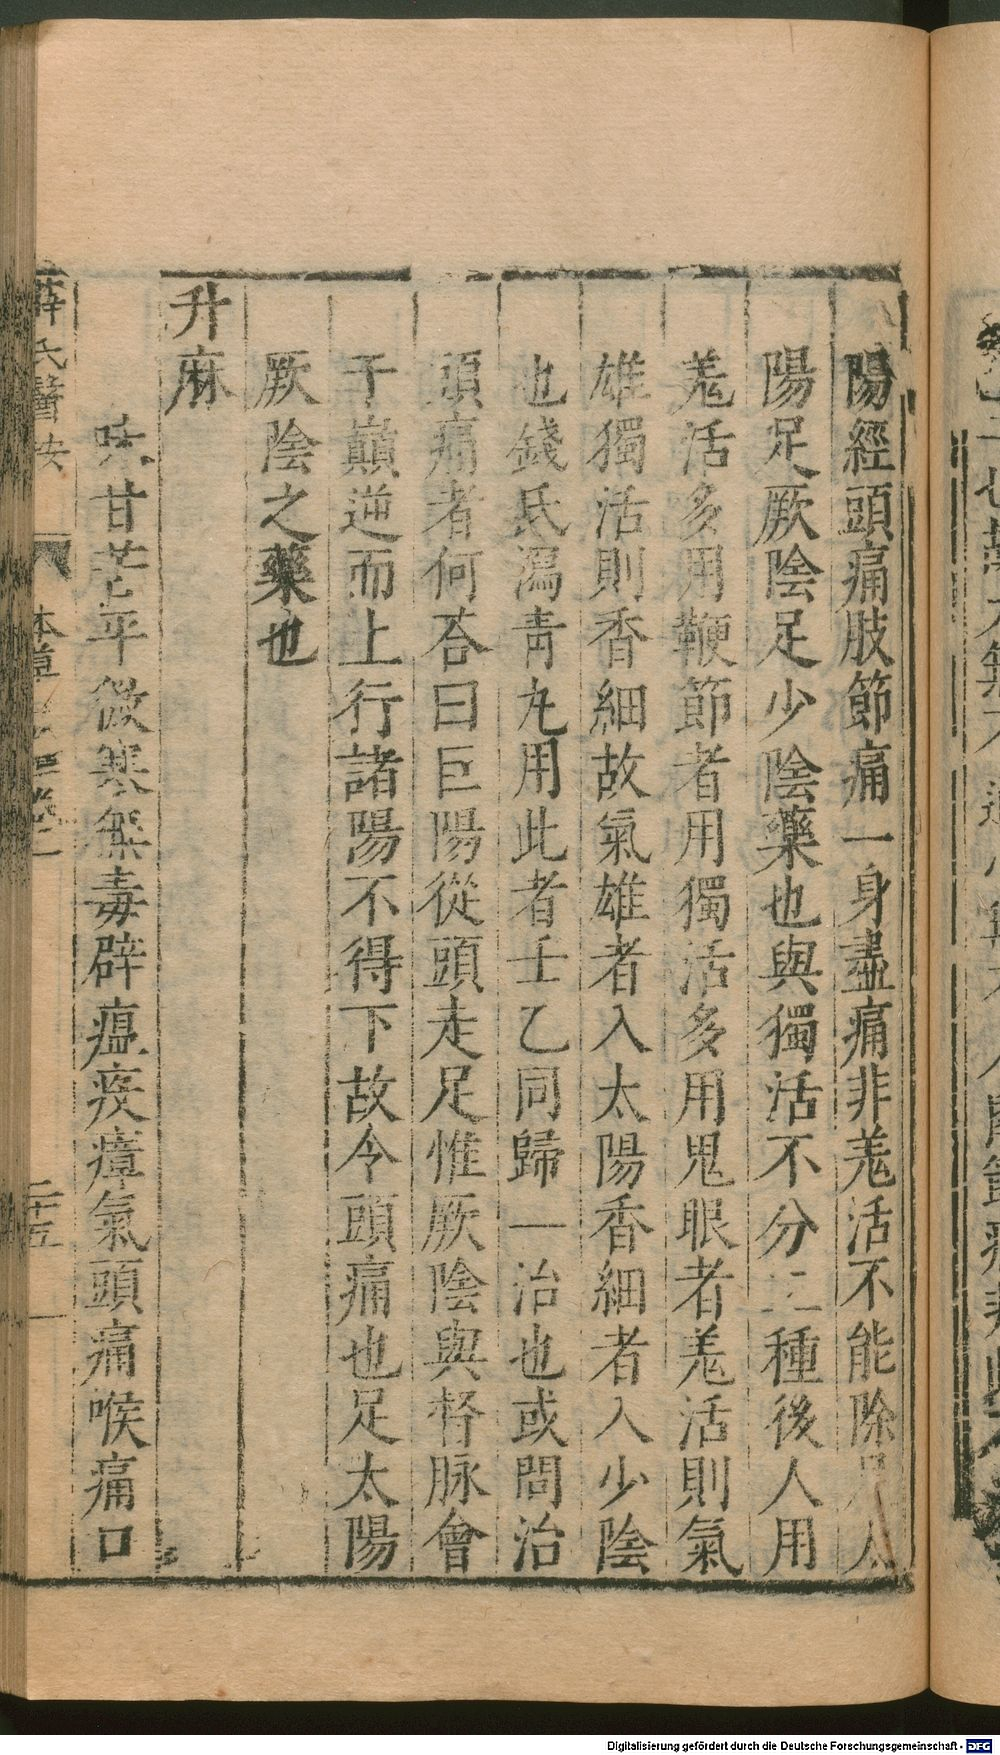 陽經頭痛肢節痛一身盡痛非羗活不能除足太
陽足厥陰足少陰藥也與獨活不分二種後人用
羗活多用鞭節者用獨活多用鬼眼者羗活則氣
雄獨活則香細故氣雄者入太陽香細者入少陰
也錢氏瀉青九用此者壬乙同歸一治也或問治
頭痛者何荅曰巨陽從頭走足惟厥陰與督脉會
于巔逆而上行諸陽不得下故令頭痛也足太陽
厥陰之藥也
升麻
味甘苦平微寒無毒辟瘟疾瘴氣頭痛喉痛口
薛氏醫按
本草
二十五
Digitalisierung gefördert durch die Deutsche Forschungsgemeinschaft - DFG